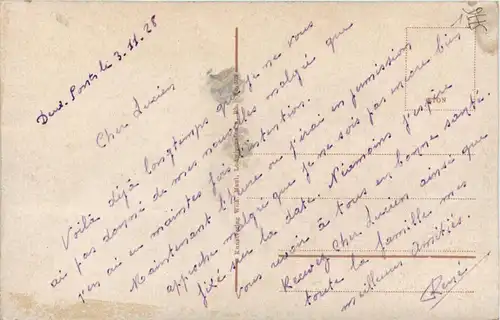 Deux-Ponts le 3.11.28
Cher Lucien
Voilà déjà longtemps que je ne vous
ai pas donné de mes nouvelles malgré que
j'en ai eu maintes fois l'intention.
Maintenant l'heure où j'irai en permission
approche malgré que je ne sois pas encore bien
fixé sur la date. Néamoins j'espère
vous revoir à tous en bonne santé.
Recevez Cher Lucien ainsi que
toute la famille mes
meilleures Amitiés.
René